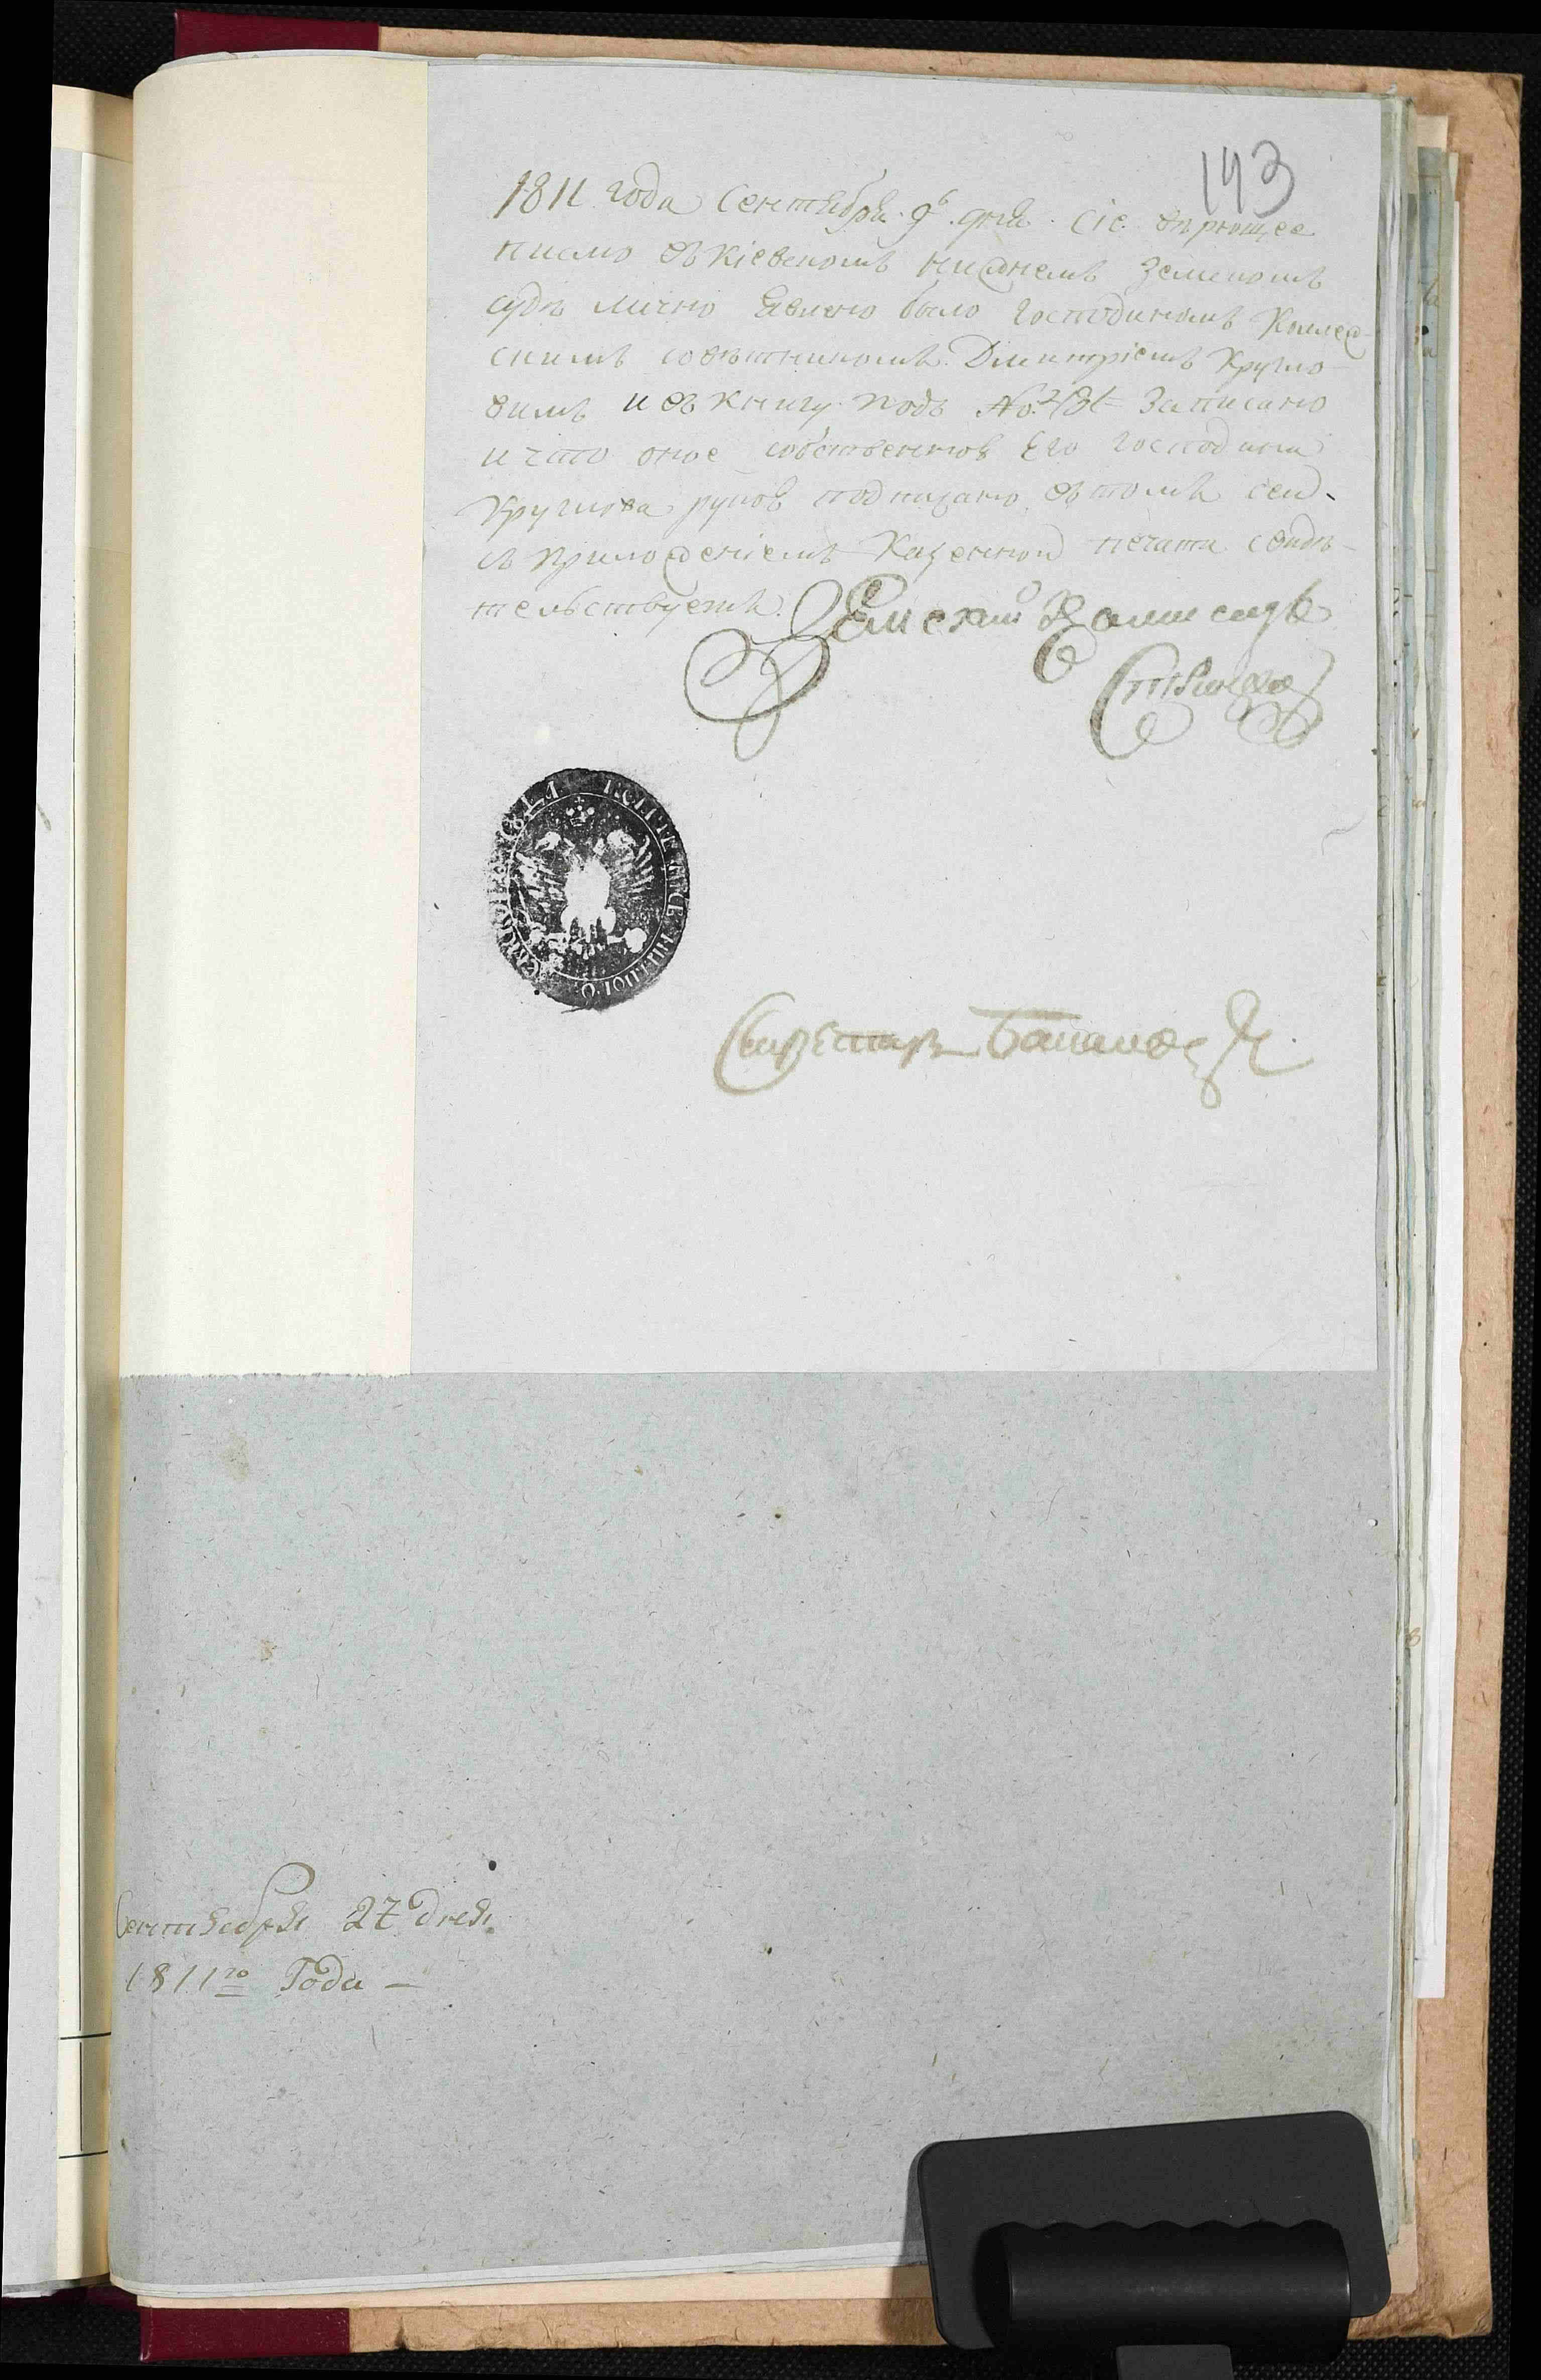 143
1811 года Сентября 9º дня Сіе вѣрющее
писмо въ кіевскомъ нижнемъ Земскомъ
судѣ лично Явлено было Господиномъ Коллеж-
скимъ совѣтникомъ Дмитріемъ Кругло-
вимъ и въ книгу подъ No: Записано
и что оное собственноѣ Его Господина
Круглова рукоѣ подписано, въ томъ суд.
съ приложеніемъ Казенной печати свидѣ-
тельствуетъ. Земский Комисаръ
Секретарь
Сентября 27 дня
1811го Года —